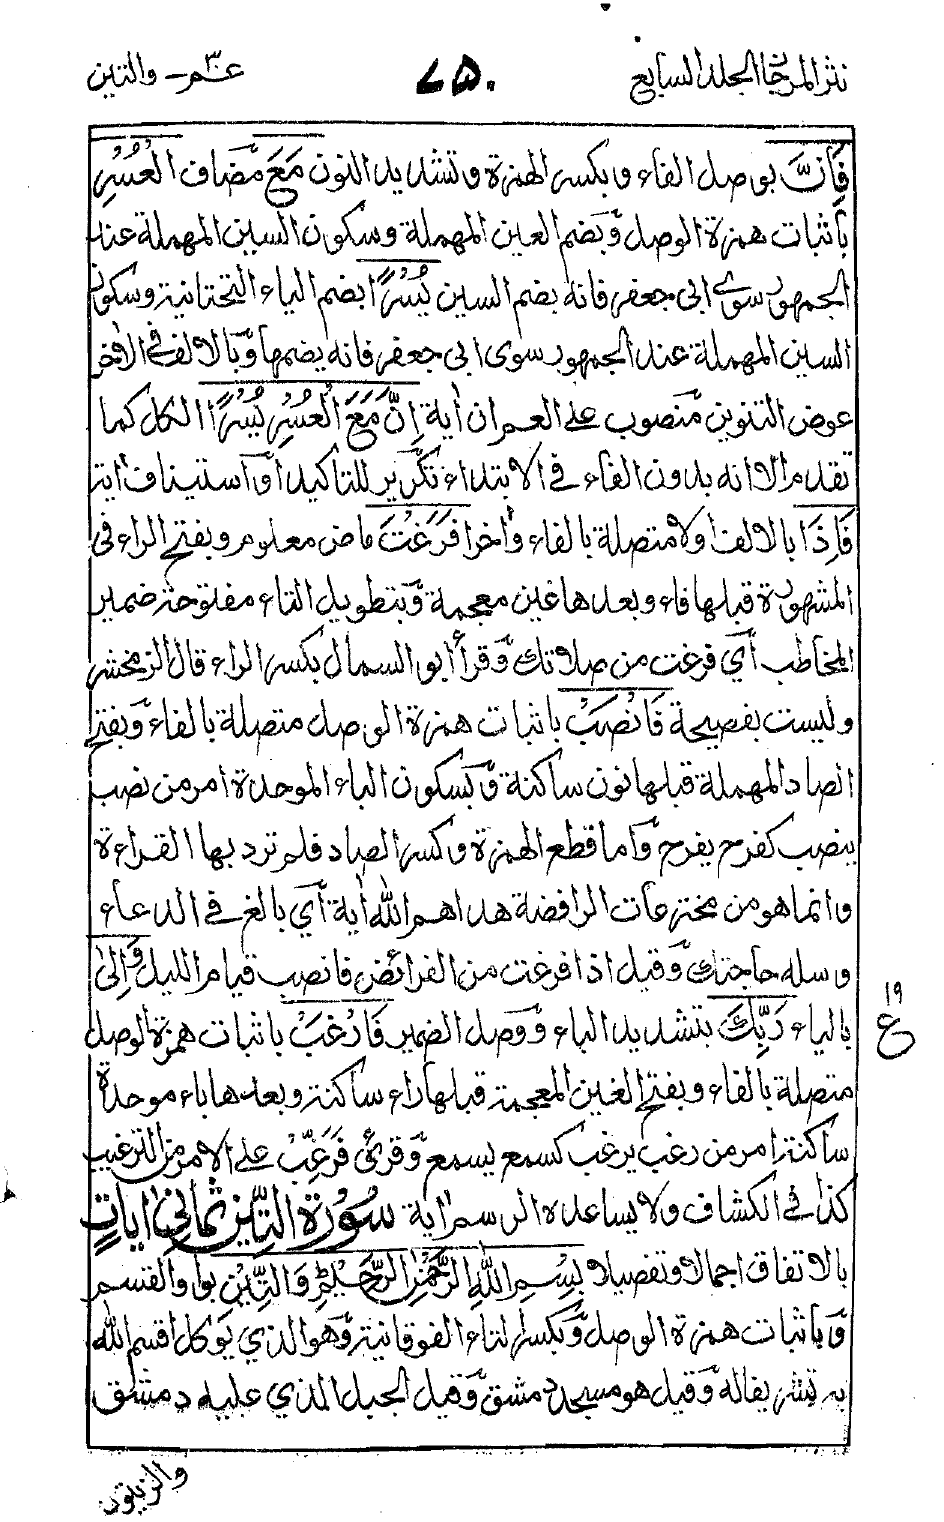 نثر المرجان الجلد السابع ٧٥٠ عم - والتين
فَاِنَّ بوصل الفاء وبكسر الهمزة وتشديد النون مَعَ مضاف الْعُسْرِ
باثبات همزة الوصل وبضم العين المهملة وسكون السين المهملة عند
الجمهور سوى ابى جعفر فانه بضم السين يُسْرًا بضم الياء التحتانية وسكون
السين المهملة عند الجمهور سوى ابى جعفر فانه يضمها وبالالف فى الاخر
عوض التنوين منصوب على العمران اٰية اِنَّ مَعَ الْعُسْرِ يُسْرًا الكل كما
تقدم الا انه بدون الفاء فى الابتداء تكرير للتاكيد او استيناف اٰية
فَاِذَا بالالف اولا متصلة بالفاء واٰخرا فَرَغْتَ ماض معلوم وبفتح الراء فى
المشهورة قبلها فاء وبعدها غين معجمة وبتطويل التاء مفتوحة ضمير
المخاطب أي فرغت من صلاتك وقرأ ابو السمال بكسر الراء قال الزمخشرى
وليست بفصيحة فَانْصَبْ باثبات همزة الوصل متصلة بالفاء وبفتح
الصاد المهملة قبلها نون ساكنة وبسكون الباء الموحدة امر من نصب
ينصب كفرح يفرح واما قطع الهمزة وكسر الصاد فلم ترد بها القراءة
وانما هو من مخترعات الرافضة هداهم الله اٰية أي بالغ فى الدعاء
وسله حاجتك وقيل اذا فرغت من الفرائض فانصب قيام الليل وَاِلىٰ
بالياء رَبِّكَ بتشديد الباء ووصل الضمير فَارْغَبْ باثبات همزة الوصل
متصلة بالفاء وبفتح الغين المعجمة قبلها راء ساكنة وبعدها باء موحدة
ساكنة امر من رغب يرغب كسمع يسمع وقرئ فَرَغِّبْ على الامر من الترغيب
كذا فى الكشاف ولا يساعده الرسم اٰية سُوْرَةُ التِّيْنِ ثَمَانِىْ اٰيَاتٍ
بالاتفاق اجمالا وتفصيلا بِسْمِ اللهِ الرَّحْمٰنِ الرَّحِيْمِ وَالتِّيْنِ بواو القسم
وباثبات همزة الوصل وبكسر التاء الفوقانية وهو الذي يؤكل اقسم الله
به تشريفا له وقيل هو مسجد دمشق وقيل الجبل الذي عليه دمشق
١٩
ع
والزيتون